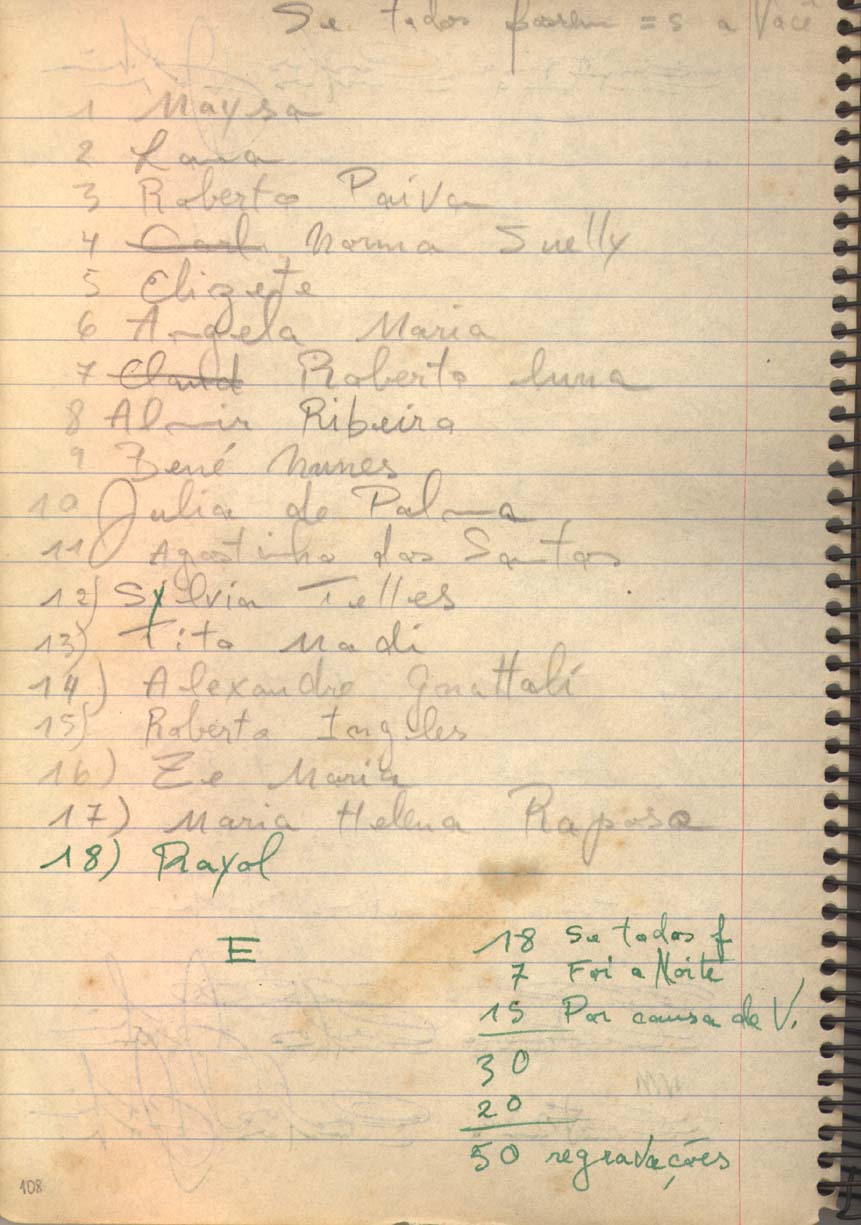 Se todos fossem = s a Você
1 Maysa
2 Lana
3 Roberto Paiva
4 Carl Norma Suelly
5 Elizete
6 Angela Maria
7 Claud Roberto Luna
8 Almir Ribeiro
9 Bené Nunes
10 Julia de Palma
11) Agostinho dos Santos
12) Sylvia Telles
13) Tito Madi
14) Alexandre Gnattali
15) Roberto Ingles
16) Ze Maria
17) Maria Helena Raposo
18) Rayol
E
18 Se todos f
7 Foi a Noite
15 Por causa de V.
30
20
50 regravações
108